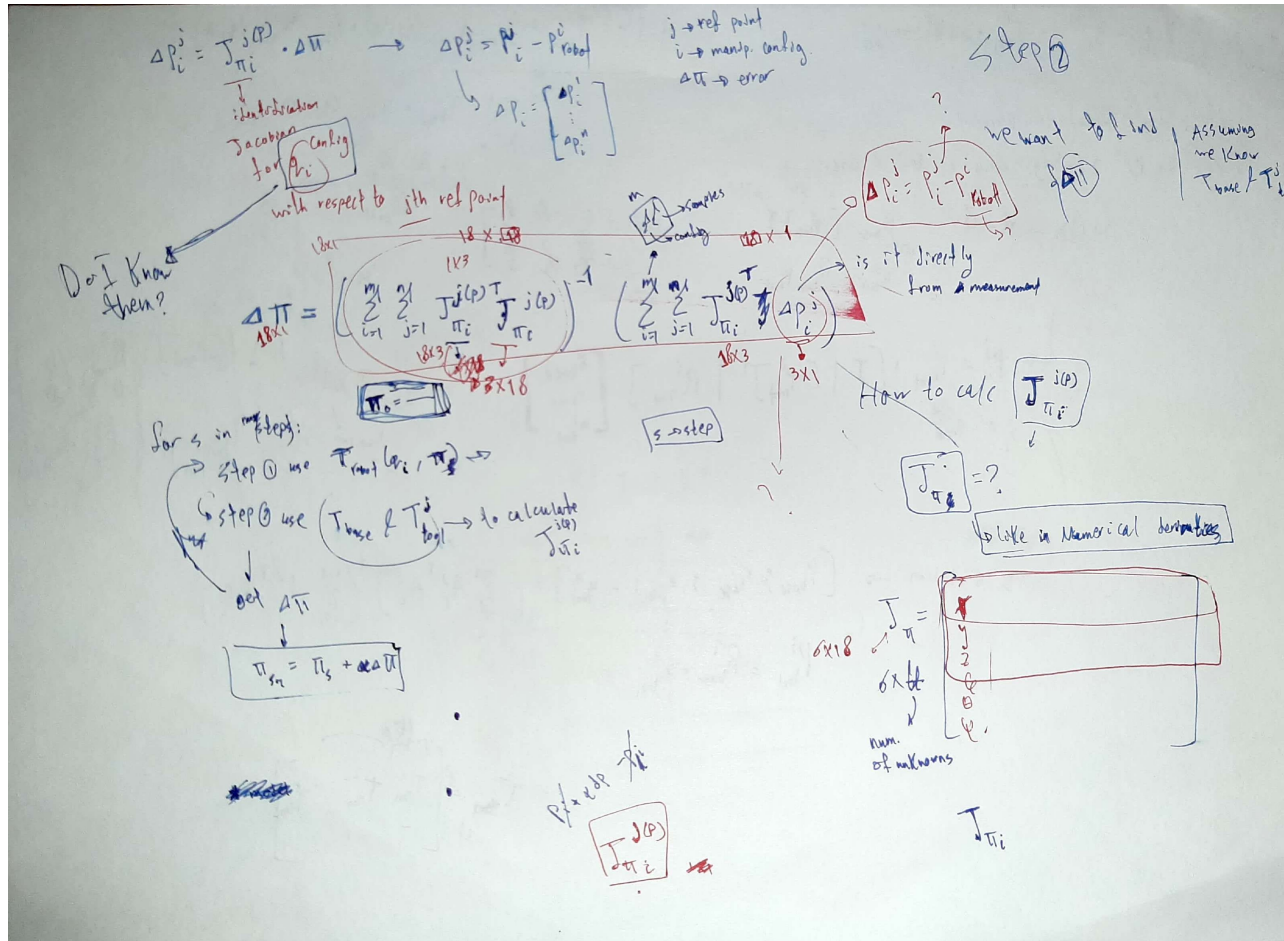 Δp_i^j = J_{π_i}^{j(p)} · Δπ → Δp_i^j = p_i^j - p_robot^i
identification
Jacobian
for q_i config
with respect to jth ref point
Δp_i = [Δp_i^1 ⋮ Δp_i^n]
j → ref point
i → manip. config.
Δπ → error
Step ②
we want to find
Δπ
Assuming
we know
T_base & T^j
?
Δp_i^j = p_i^j - p^i_robot
?
Do I Know
them?
m
→ samples
→ config
is it directly
from measurement
18x1
18 x 18
1x3
18 x 1
Δπ = ( Σ_{i=1}^{m} Σ_{j=1}^{n} J_{π_i}^{j(p)T} J_{π_i}^{j(p)} )^{-1} ( Σ_{i=1}^{m} Σ_{j=1}^{n} J_{π_i}^{j(p)T} Δp_i^j )
18x1
18x3
3x18
18x3
3x1
?
π_0 =
s → step
How to calc J_{π_i}^{j(p)}
J_π = ?
↳ Like in Numerical derivatives
for s in steps:
step ① use T_robot (q_i, π_s)
step ② use (T_base & T_tool^j) → to calculate
J_{π_i}^{j(p)}
get Δπ
π_{sn} = π_s + α Δπ
6x18
J_π =
x
y
z
φ
θ
ψ
6x
num.
of unknowns
J_{π_i}^{j(p)}
J_{π_i}